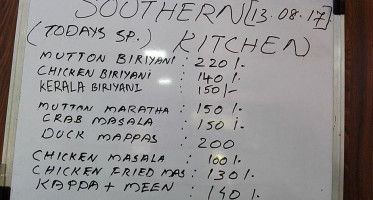 SOUTHERN [13.08.17]
(TODAYS SP.) KITCHEN)
MUTTON BIRIYANI : 220 /-
CHICKEN BIRIYANI : 140 /-
KERALA BIRIYANI : 150/-
MUTTAN MARATHA : 150 /-
CRAB MASALA : 150 /-
DUCK MAPPAS : 200
CHICKEN MASALA : 100 /-
CHICKEN FRIED MAS : 130 /-
KAPPA + MEEN : 140 /-